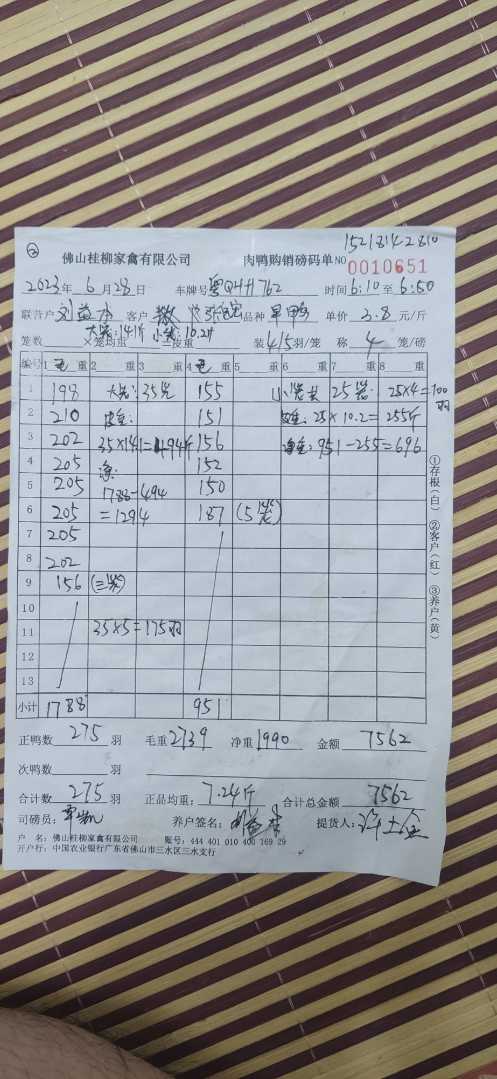 15218142810
②
佛山桂柳家禽有限公司 肉鸭购销磅码单 NO 0010651
2023年 6月28日 车牌号粤QHH762 时间6:10至6:50
联营户 刘益 客户 品种 单价 3.8 元/斤
大笼:14.1斤 小笼:10.2斤
笼数 ×笼均重 =皮重 装4/5羽/笼 称 4 笼/磅
编号 1 毛重 2 重 3 重 4 毛重 5 重 6 重 7 重 8 重
1 198 大笼:35笼 155 小笼 25笼: 25×4=100羽
2 210 皮重: 151 皮重: 25×10.2=255斤
3 202 35×14.1=494斤 156 净重: 951-255=696
4 205 净: 152
5 205 1788-494 150
6 205 =1294 187 (5笼)
7 205
8 202
9 156 (三笼)
10
11 35×5=175羽
12
13
小计 1788 951
①存根(白) ②客户(红) ③养户(黄)
正鸭数 275 羽 毛重2739 净重1990 金额 7562
次鸭数 羽
合计数 275 羽 正品均重: 7.24斤 合计总金额 7562
司磅员: 养户签名: 提货人:
户 名: 佛山桂柳家禽有限公司 账号: 444 401 010 400 169 29
开户行: 中国农业银行广东省佛山市三水区三水支行